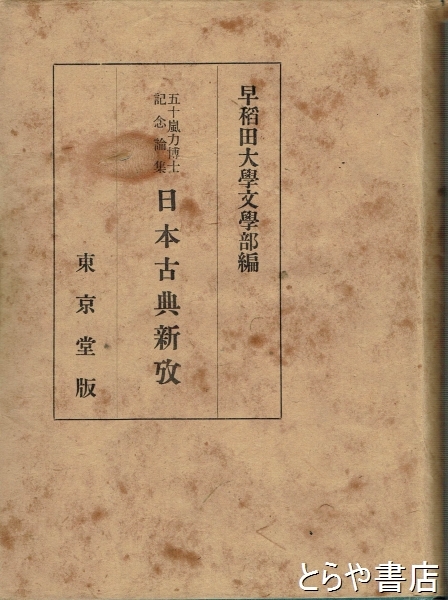 早稻田大學文學部編
五十嵐力博士
記念論集
日本古典新攷
東京堂版
とらや書店